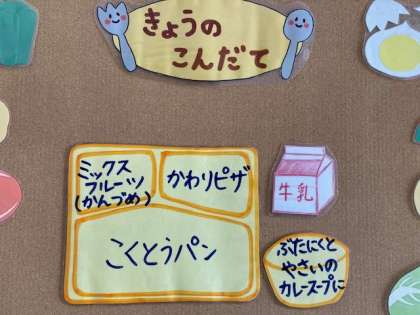 きょうの
こんだて
ミックス
フルーツ
(かんづめ)
かわりピザ
こくとうパン
牛乳
ぶたにくと
やさいの
カレースープに